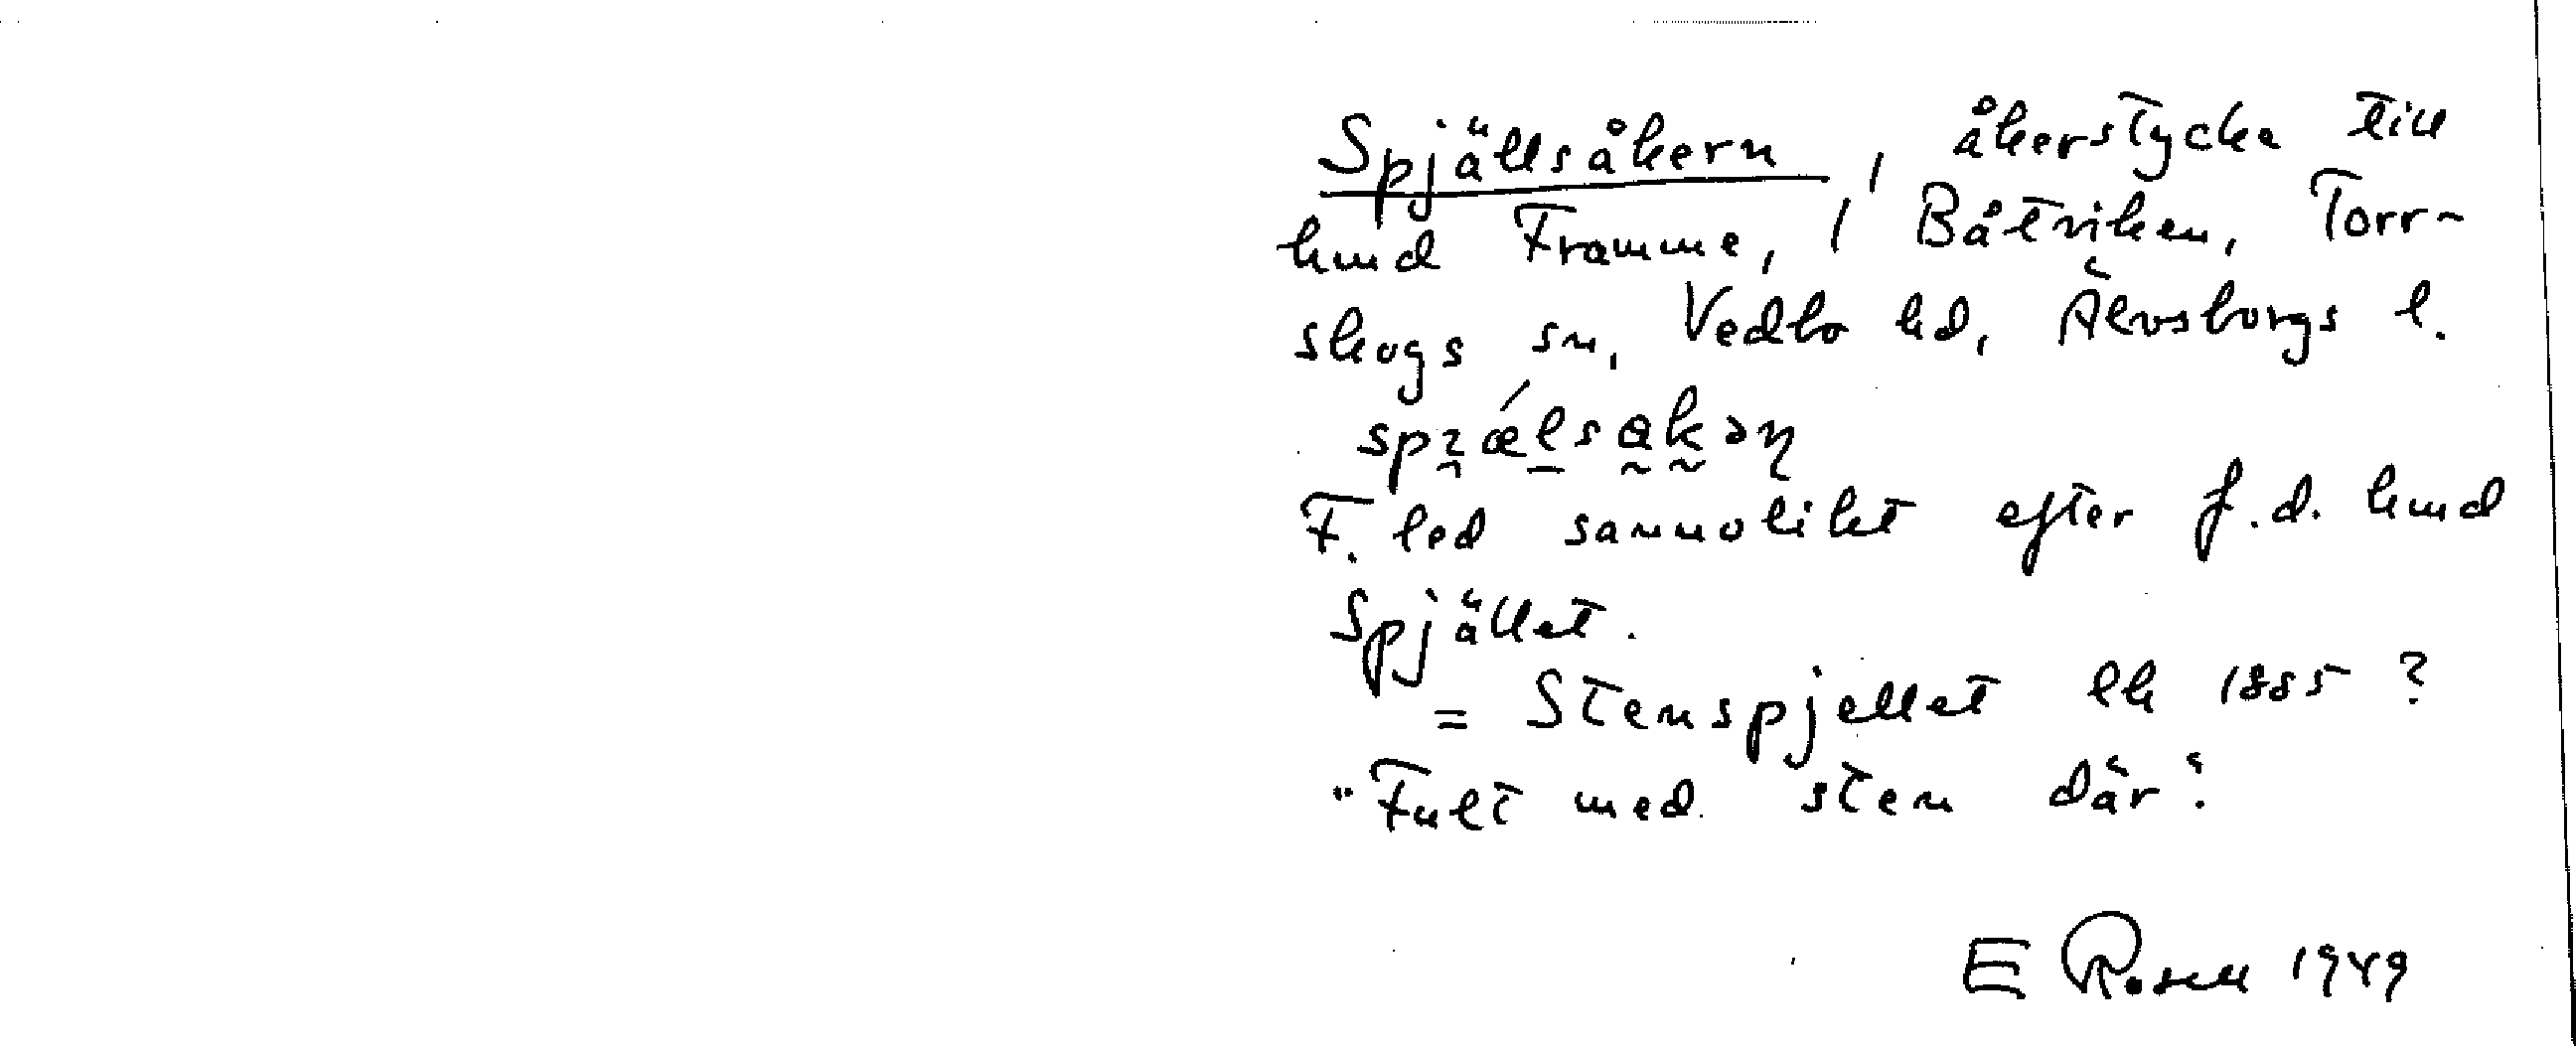 Spjällsåkern, åkerstycke till
hmd Framme, 1 Båtviken, Torr-
skogs sn, Vedbo hd, Älvsborgs l.
F. led sannolikt efter f.d. hmd
Spjället.
= Stenspjellet lk 1885 ?
"Fullt med sten där".
E Rosell 1949